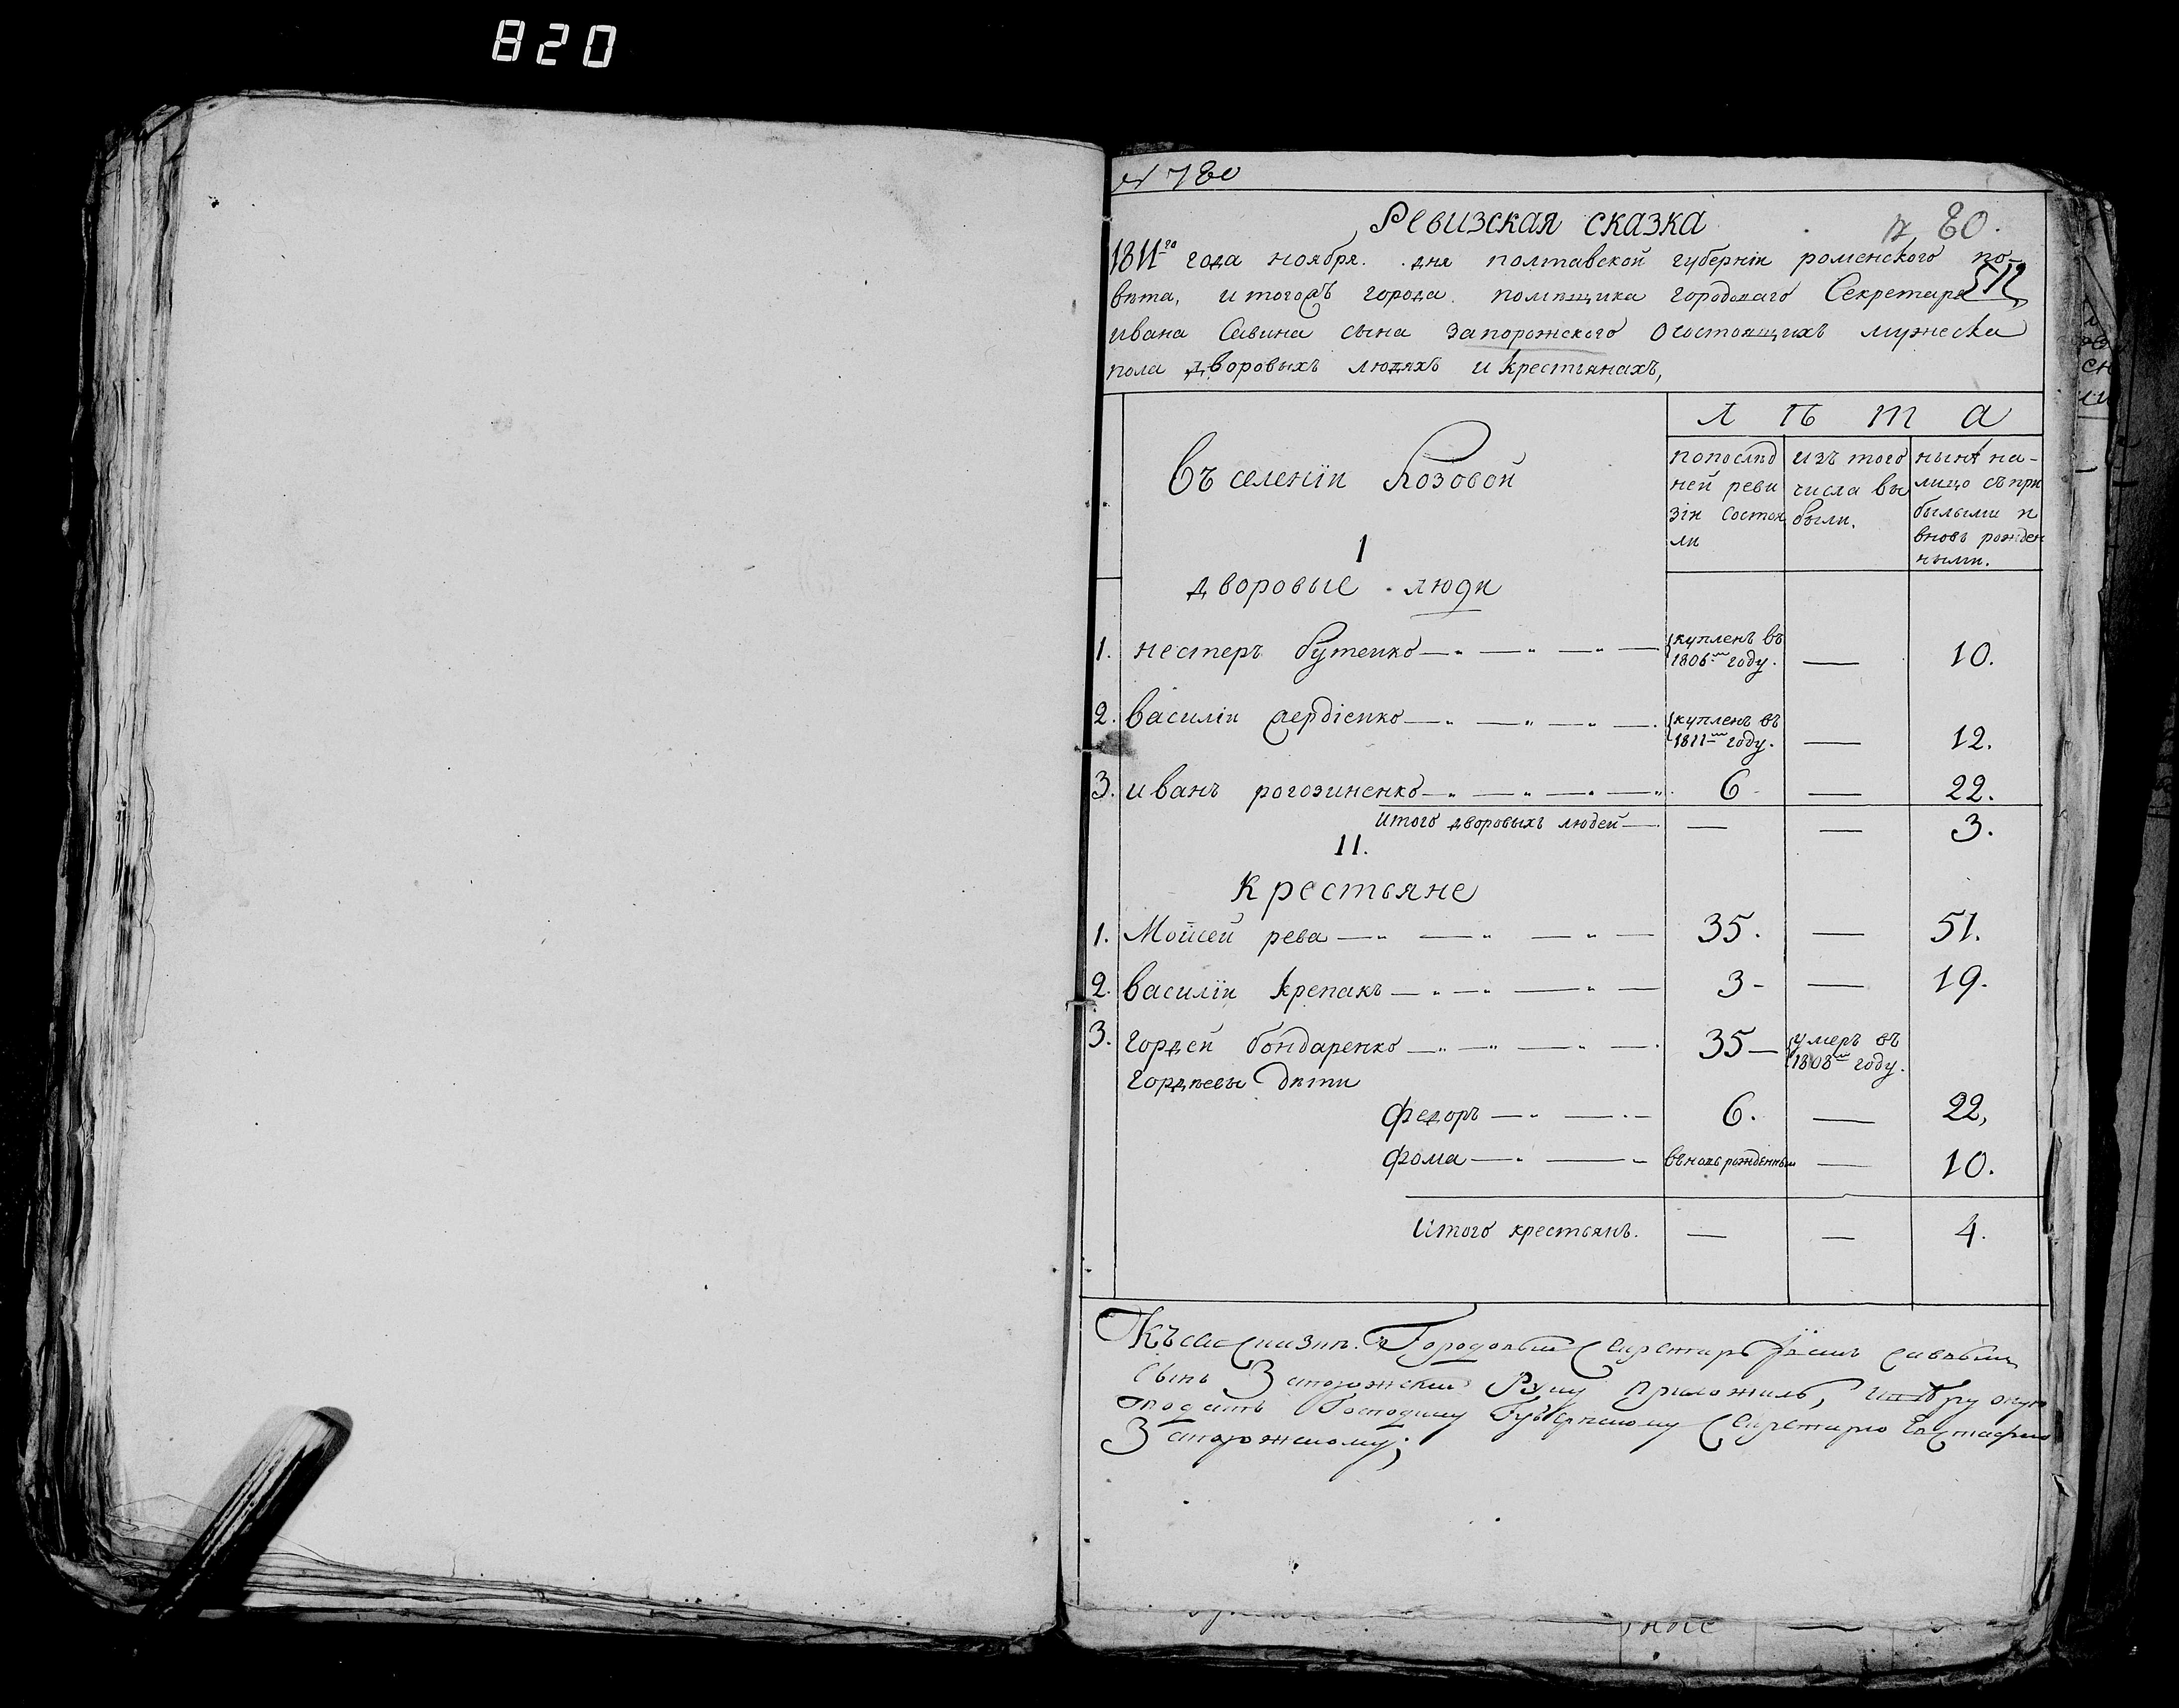 820
№ 780
Ревизская сказка
80.
1811го года ноября. дня полтавской губернїи роменского по-
вѣта, и того жъ города помѣщика городоваго Секретаря
512
ивана Савина сына запорожского О состоящихъ мужеска
пола дворовыхъ людяхъ и крестьянахъ,
Л ѣ т а
Въ селенїи Лозовой
по послѣд
ней реви
зїи состоя
ли
изъ того
числа вы
были.
нынѣ на-
лицо съ при
былыми и
вновь рожден
ными.
1
дворовые люди
1. нестеръ бутенко куплень въ 1806м году. — 10.
2. василїи сердїенко куплень въ 1811м году. — 12.
3. иванъ рогозиненко 6 — 22.
Итого дворовыхъ людей — — 3.
11.
крестьяне
1. Мойсей рева 35. — 51.
2. василїи крепакъ 3 — 19.
3. гордей бондаренко 35 умеръ въ 1808м году.
гордѣевы дѣти
федоръ 6. — 22,
фома въновь рожденный — 10.
Итого крестьянъ. — — 4.
Къ сей сказкѣ Городовый Секретарь Иванъ Савинъ
сынъ Запорожскій Руку приложилъ, и вѣру оную
подать Господину Губернскому Секретарю Евстафию
Запорожскому;
ные